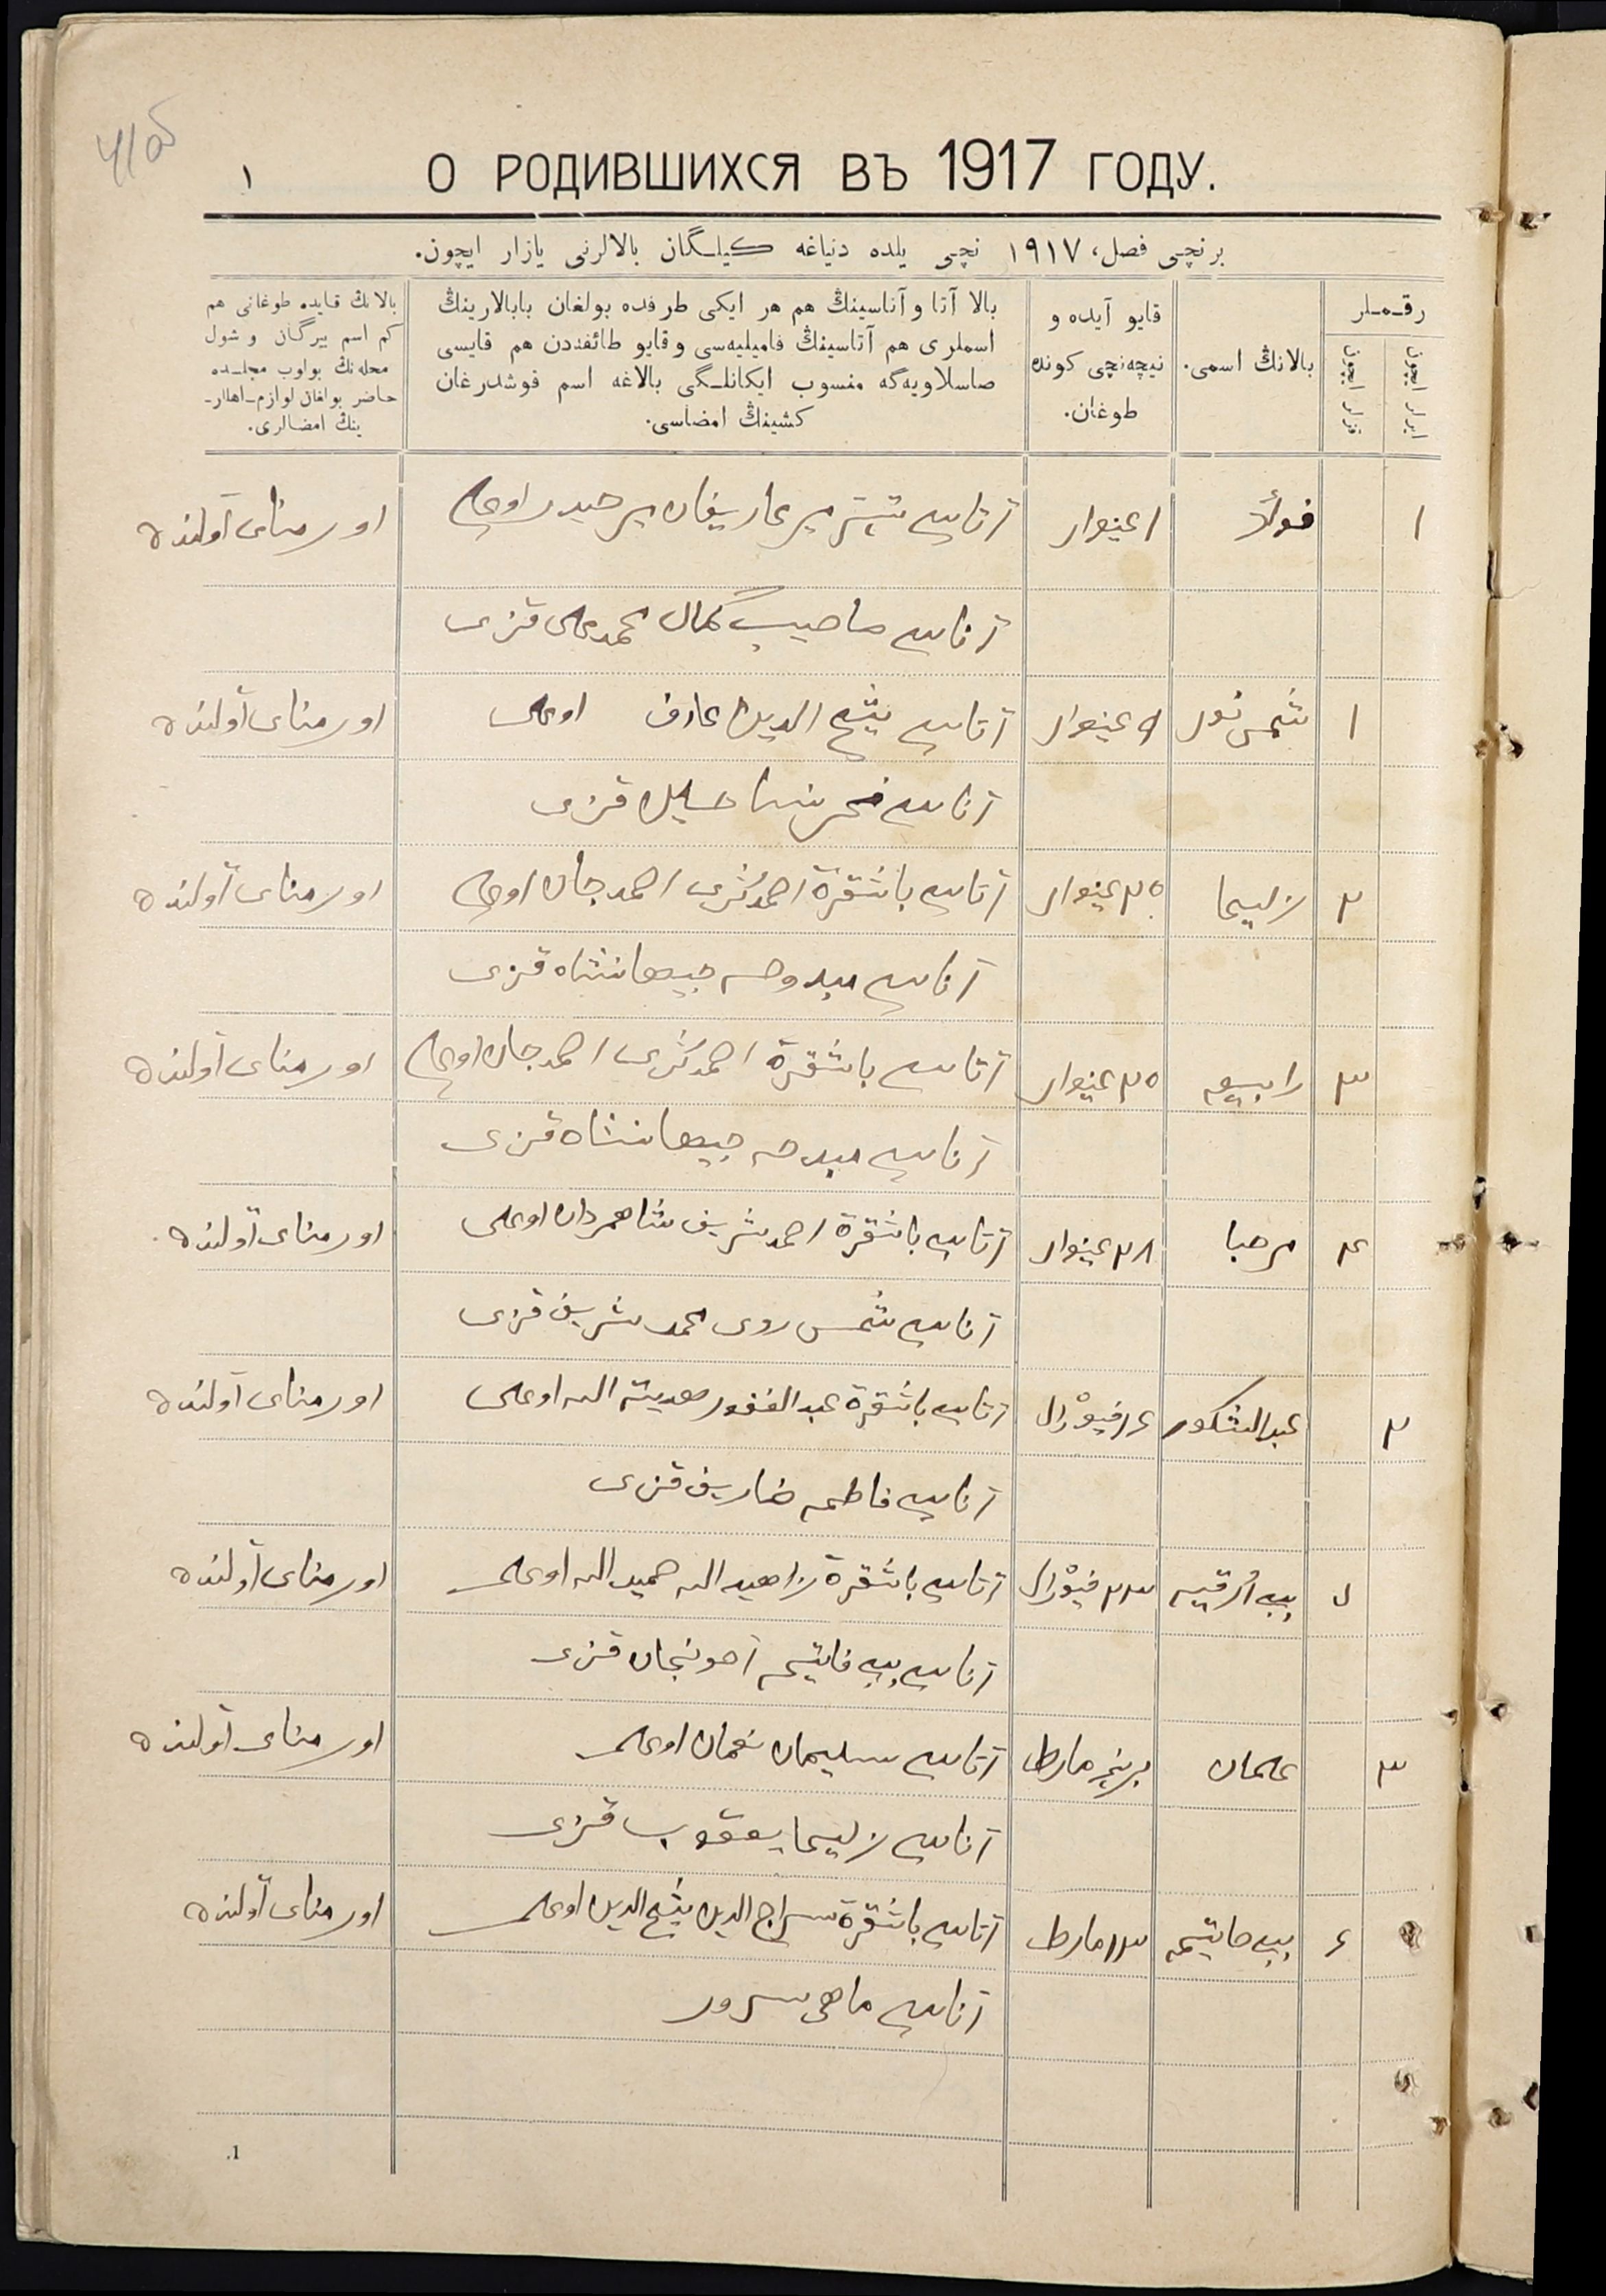 41об
О РОДИВШИХСЯ ВЪ 1917 ГОДУ.
١
برنچی فصل، ١٩١٧ نچی یلده دنیاغه کیلـگان بالالرنی یازار ایچون.
رقـمـلر
ایرلر ایچون
قزلر ایچون
بالانڭ اسمی.
قایو آیده و
نیچه‌نچی کونده
طوغان.
بالا آتا و آناسینڭ هم هر ایکی طرفده بولغان بابالارینڭ
اسملری هم آتاسینڭ فامیلیه‌سی و قایو طائفه‌دن هم قایسی
صاسلاویه‌گه منسوب ایکانلـگی بالاغه اسم قوشدرغان
کشینڭ امضاسی.
بالانڭ قایده طوغانی هم
کم اسم بیرگان و شول
محله‌نڭ بولوب مجلـده
حاضر بولغان لوازم اهللر
ینڭ امضالری.
١ فواد ١ غینوار آتاسی تیپتر میرعاریفان میرحیدر اوغلی اورمنای آولنده
آناسی صاحیب کمال محمدعلی قزی
١ شمس نور ٩ غینوار آتاسی شیخ الدین عارف اوغلی اورمنای آولنده
آناسی فخرنسا قزی
٢ زلیحا ٢٥ غینوار آتاسی باشقرة احمدشریف احمدجان اوغلی اورمنای آولنده
آناسی جیهانشاه قزی
٣ رابیعه ٢٥ غینوار آتاسی باشقرة احمدشریف احمدجان اوغلی اورمنای آولنده
آناسی جیهانشاه قزی
٤ مرحبا ٢٨ غینوار آتاسی باشقرة احمدشریف شاهمردان اوغلی اورمنای آولنده
آناسی شمس روی محمدشریف قزی
٢ عبدالشکور ١٤ فیورال آتاسی باشقرة عبدالغفور هدیة الله اوغلی اورمنای آولنده
آناسی فاطمه ضاریف قزی
٥ بیبی رقیه ٢٣ فیورال آتاسی باشقرة زاهیدالله حمیدالله اوغلی اورمنای آولنده
آناسی بیبی فاتیحه آخونجان قزی
٣ علمان برنچی مارط آتاسی سلیمان نعمان اوغلی اورمنای آولنده
آناسی زلیحا یعقوب قزی
٦ بیبی حاتیمه ١٣ مارط آتاسی باشقرة سراج الدین شیخ الدین اوغلی اورمنای آولنده
آناسی ماهی سرور
1.